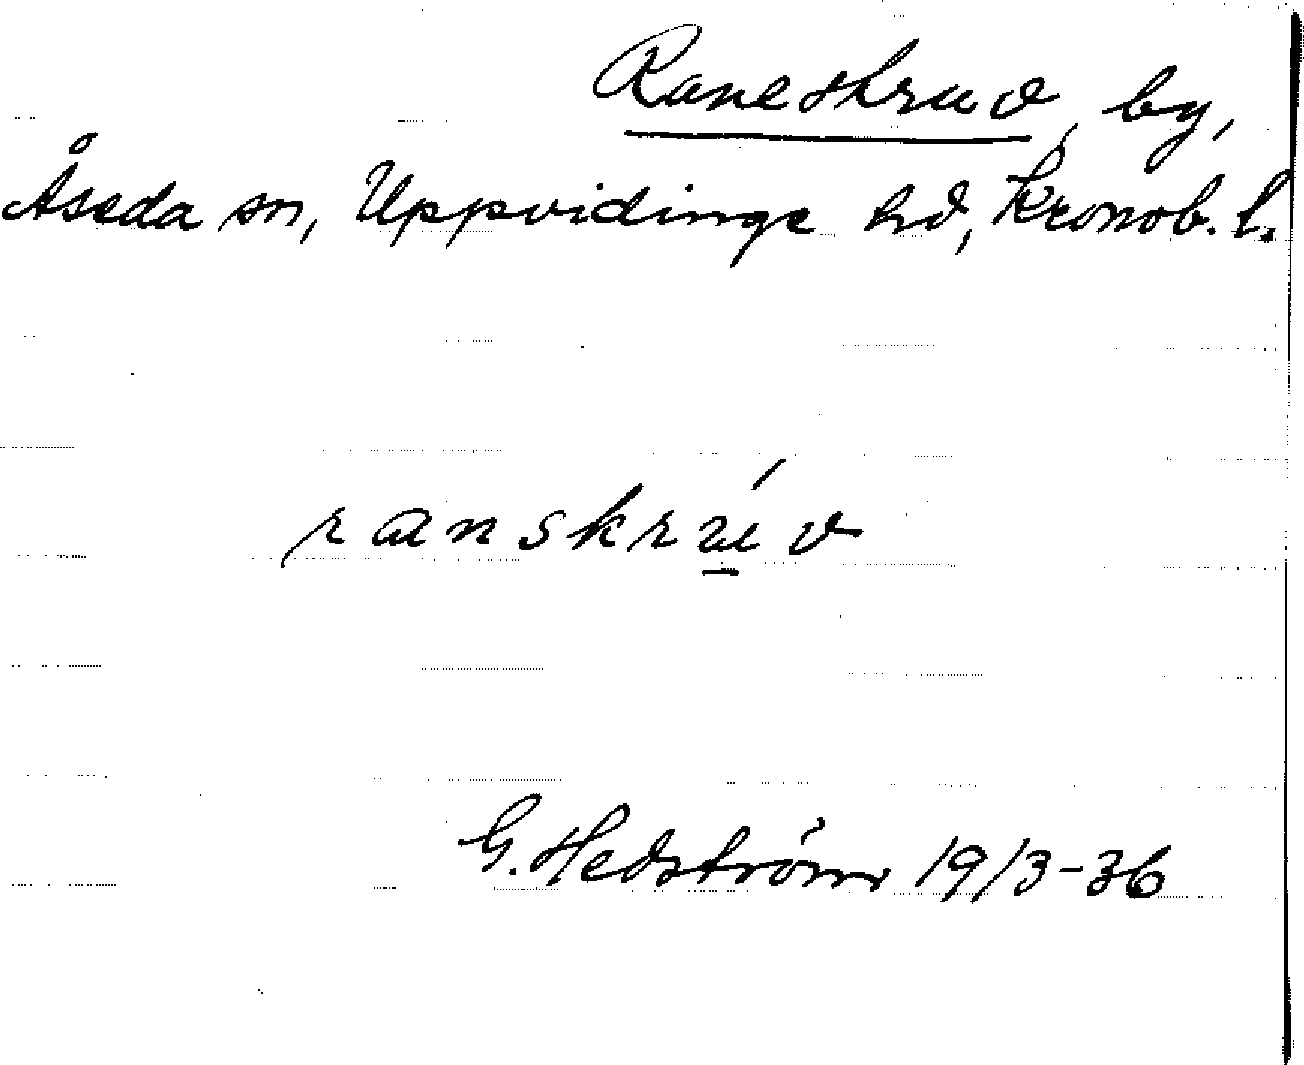 Raneskruv, by,
Åseda sn, Uppvidinge hd, Kronob. l.
ranskruv
G. Hedström 19/3-36